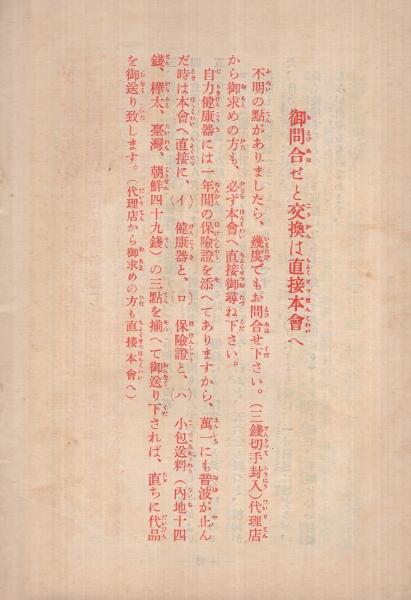 御問合せと交換は直接本會へ
不明の點がありましたら、幾度でもお問合せ下さい。（三錢切手封入）代理店
から御求めの方も、必ず本會へ直接御尋ね下さい。
自力健康器には一年間の保險證を添へてありますから、萬一にも普波が止ん
だ時は本會へ直接に、（イ）健康器と、（ロ）保險證と、（ハ）小包送料（內地十四
錢、樺太、臺灣、朝鮮四十九錢）の三點を揃へて御送り下されば、直ちに代品
を御送り致します。（代理店から御求めの方も直接本會へ）